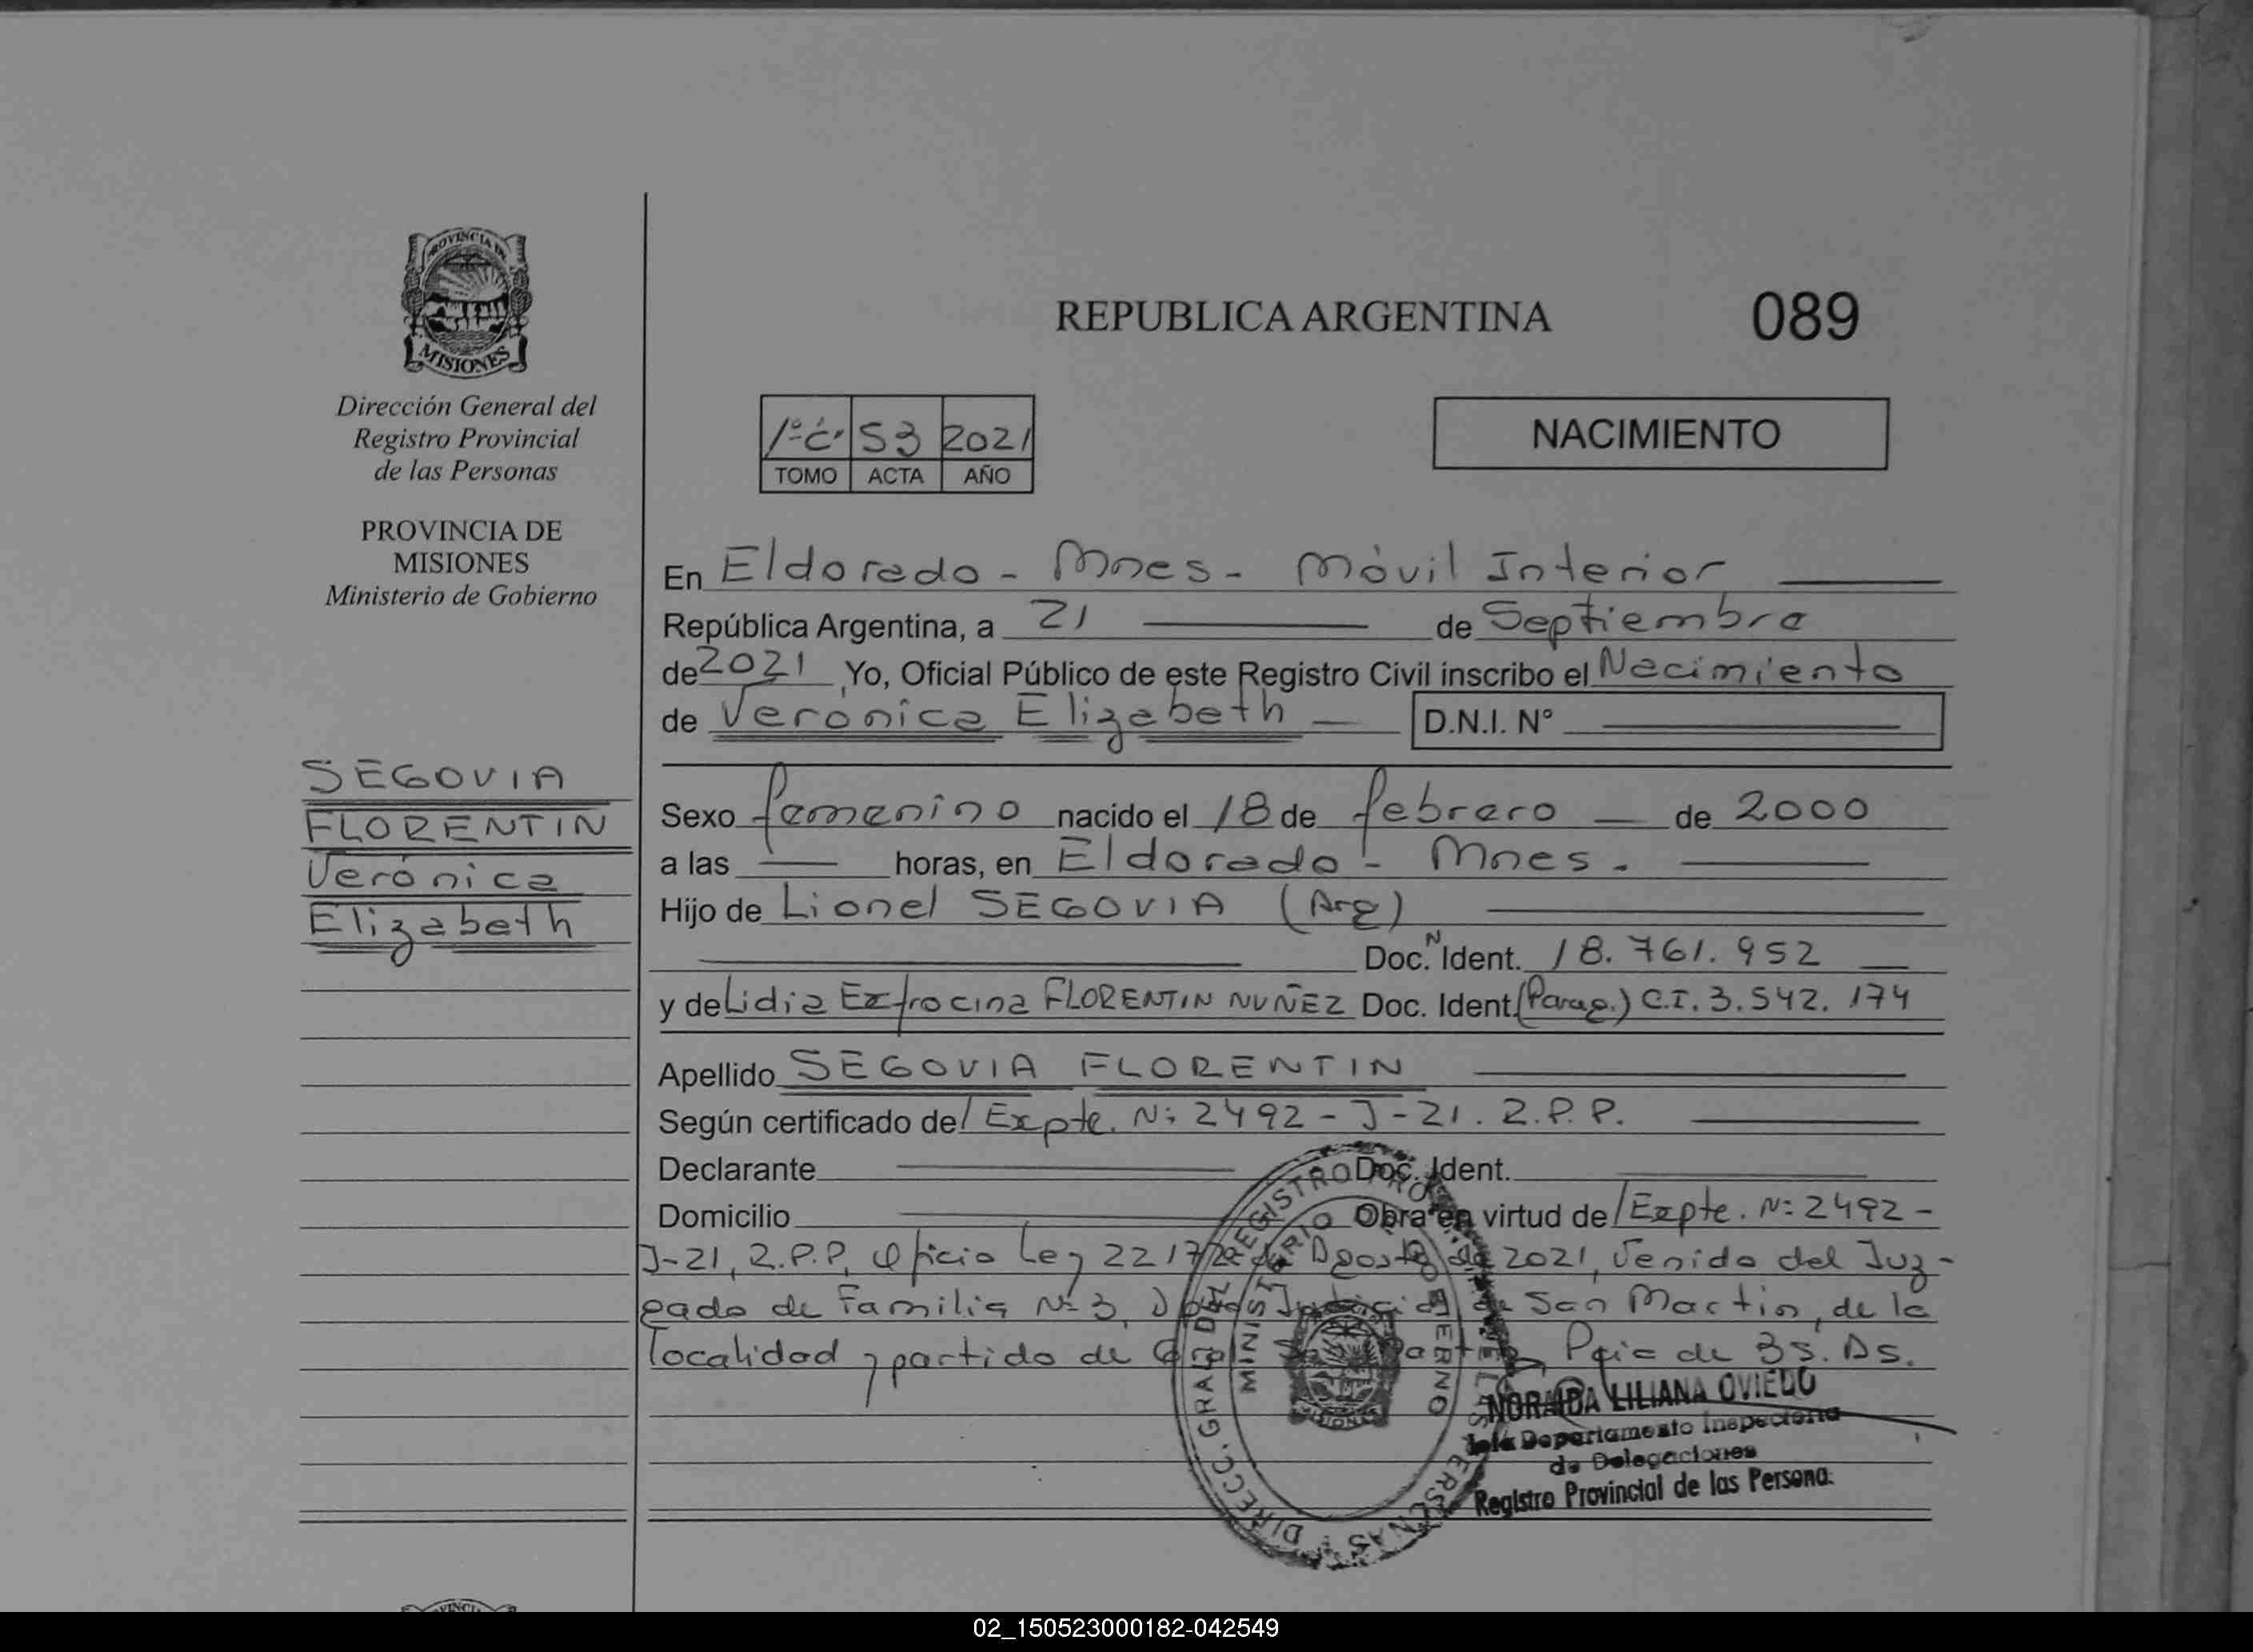 PROVINCIA DE
MISIONES
Dirección General del
Registro Provincial
de las Personas
PROVINCIA DE
MISIONES
Ministerio de Gobierno
SEGOVIA
FLORENTIN
Verónica
Elizabeth
REPUBLICA ARGENTINA
089
1º C. 53 2021
TOMO ACTA AÑO
NACIMIENTO
En Eldorado - Mnes - Móvil Interior
República Argentina, a 21 de Septiembre
de 2021 Yo, Oficial Público de este Registro Civil inscribo el Nacimiento
de Verónica Elizabeth D.N.I. N°
Sexo femenino nacido el 18 de febrero de 2000
a las horas, en Eldorado - Mnes.
Hijo de Lionel SEGOVIA (Arg)
Doc. N Ident. 18.761.952
y de Lidia Exfrocina FLORENTIN NUÑEZ Doc. Ident. (Parag.) C.I. 3.542.174
Apellido SEGOVIA FLORENTIN
Según certificado de/ Expte. Nº 2492-J-21. R.P.P.
Declarante Doc. Ident.
Domicilio Obra en virtud de/ Expte. Nº 2492-
J-21, R.P.P, Oficio Ley 22172 de Agosto de 2021, Venido del Juz-
gado de Familia Nº 3, Judicial de San Martin, de la
localidad y partido de Gral San Martin Pcia de Bs. As.
DIRECC. GRAL. DEL REGISTRO PROV. DE LAS PERSONAS
MINISTERIO DE GOBIERNO
MISIONES
NORAIDA LILIANA OVIEDO
Jefa Departamento Inspectoria
de Delegaciones
Registro Provincial de las Persona.
02_150523000182-042549